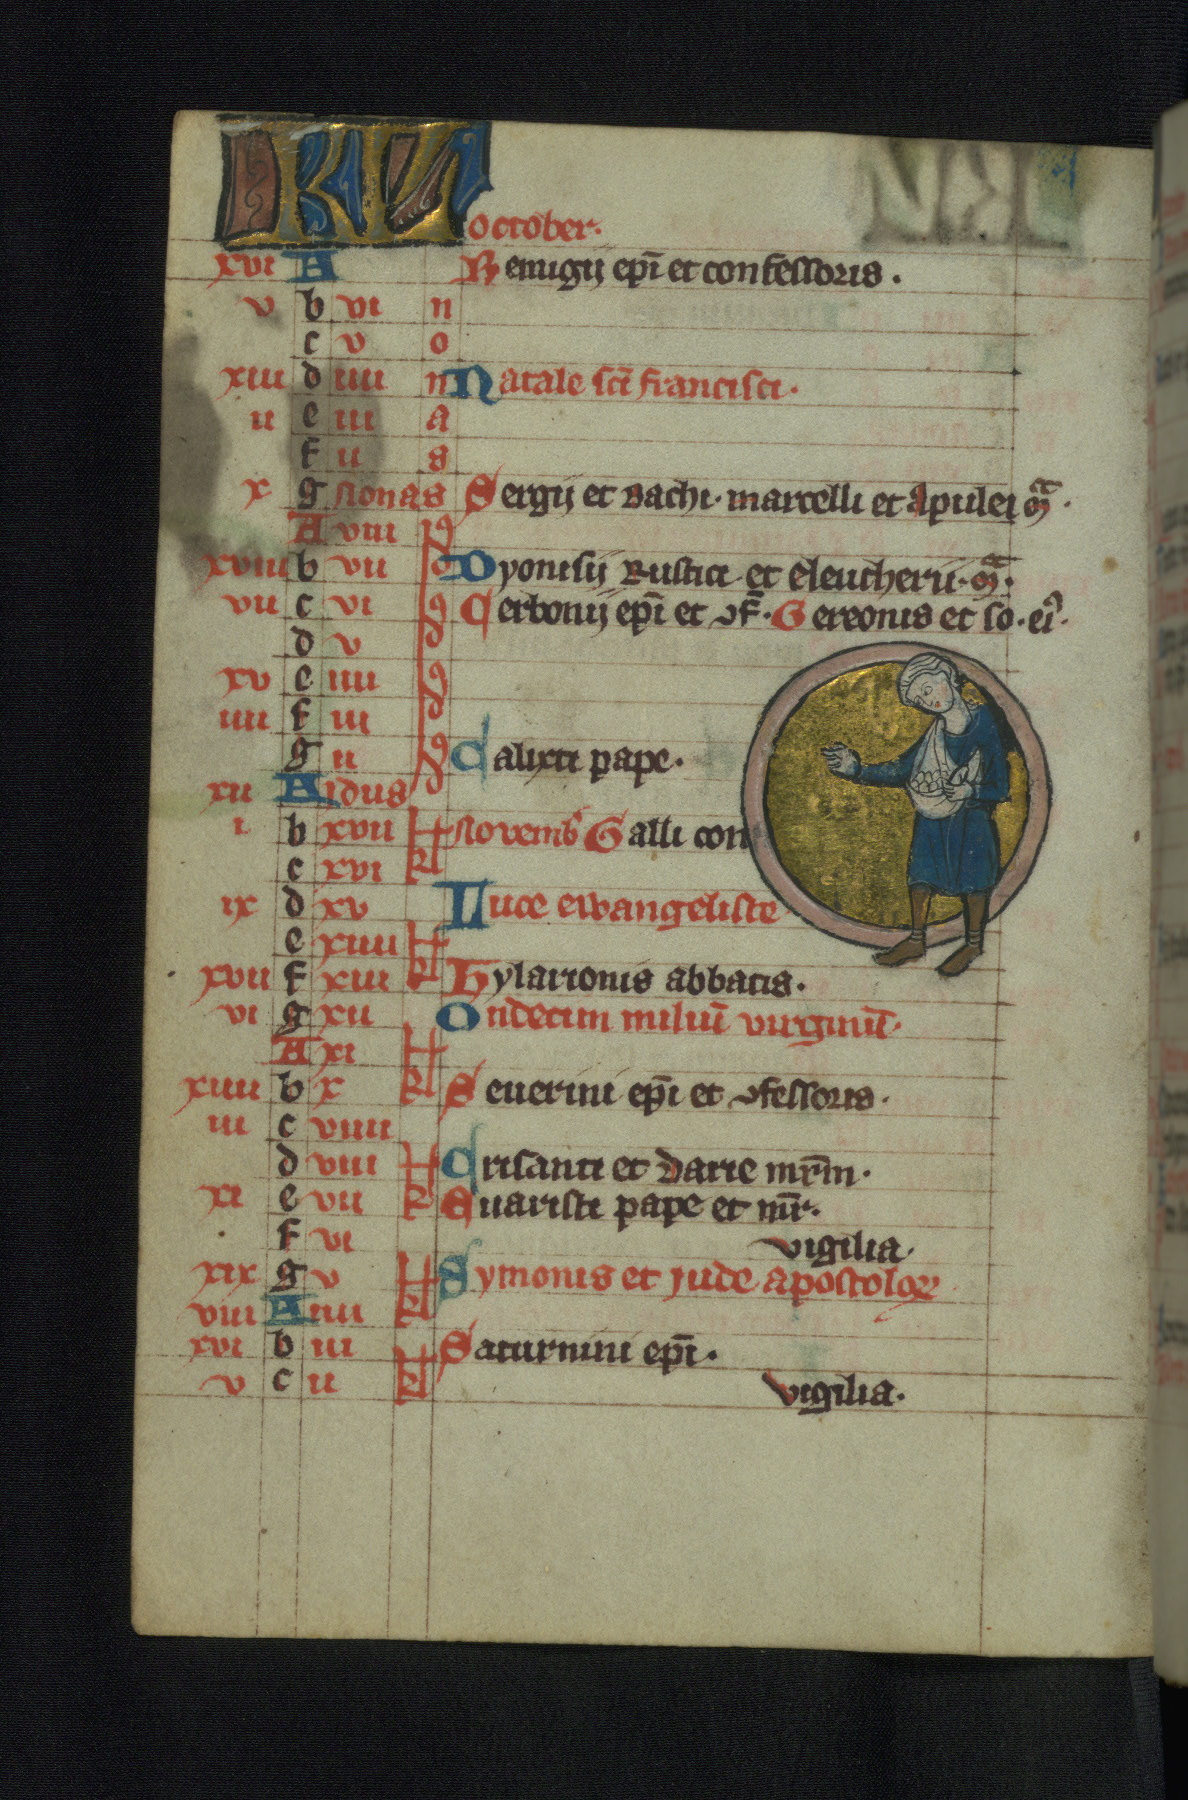 KL
october.
xvi A Remigij ep̄i et confessoris.
v b vi n
c v o
xiii d iiii n Natale sc̄i francisci.
ii e iii a
f ii s
x g nonas Sergij et bachi. marcelli et apulei
A viii
xviii b vii Dyonisij Rustici et eleutherii.
vii c vi Cerbonij ep̄i et ɔf̄. Gereonis et so. ei᾽.
d v
xv e iiii
iiii f iii
g ii Calixti pape.
xii A idus
i b xvii kł novemb᾽ Galli con
c xvi
ix d xv Luce ewangeliste
e xiiii kł
xvii f xiii Hylarionis abbatis.
vi g xii Ondecim miliū virginū.
A xi kł
xiiii b x Seuerini ep̄i et ɔfessoris.
iii c viiii
d viii kł Crisanti et Darie mr̄m.
xi e vii Euaristi pape et mr̄.
f vi vigilia.
xix g v kł Symonis et jude apostoloꝝ
viii A iiii
xvi b iii kł Saturnini ep̄i.
v c ii vigilia.